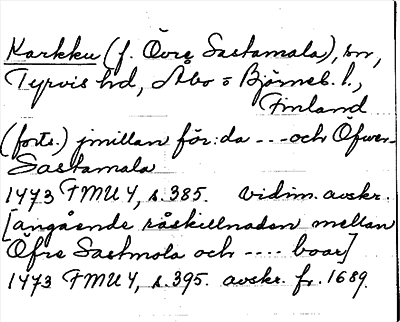 Karkku (f. Övre Sastamala), sn,
Tyrvis hd, Åbo o Björneb. l.,
Finland
(forts.) jmillan för:da --- och Öfwer-
Sastamala
1473 FMU 4, s. 385. vidim. avskr.
[angående råskillnaden mellan
Öfre Sastmola och ---- boar]
1473 FMU 4, s. 395. avskr. fr. 1689.